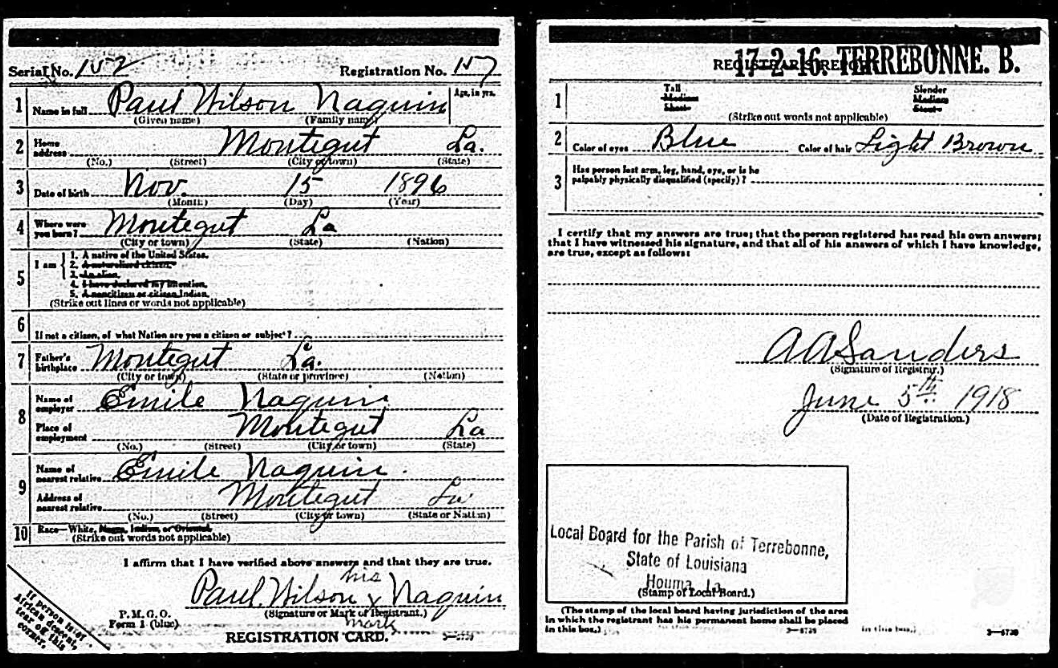 Serial No. 152 Registration No. 157
1 Name in full Paul Wilson Naquin Age, in yrs.
(Given name) (Family name)
2 Home address Montegut La.
(No.) (Street) (City or town) (State)
3 Date of birth Nov. 15 1896
(Month) (Day) (Year)
4 Where were you born? Montegut La
(City or town) (State) (Nation)
5 I am
1. A native of the United States.
2. A naturalized citizen.
3. An alien.
4. I have declared my intention.
5. A noncitizen or citizen Indian.
(Strike out lines or words not applicable)
6 If not a citizen, of what Nation are you a citizen or subject?
7 Father's birthplace Montegut La.
(City or town) (State or province) (Nation)
8 Name of employer Emile Naquin
Place of employment Montegut La
(No.) (Street) (City or town) (State)
9 Name of nearest relative Emile Naquin.
Address of nearest relative Montegut La
(No.) (Street) (City or town) (State or Nation)
10 Race—White, Negro, Indian, or Oriental.
(Strike out words not applicable)
I affirm that I have verified above answers and that they are true.
his
Paul Wilson x Naquin
(Signature or Mark of Registrant.)
mark
P. M. G. O.
Form 1 (blue)
REGISTRATION CARD.
If person is of
African descent,
tear off this
corner.
REGISTRAR'S REPORT
17-2-16. TERREBONNE. B.
1 Tall Slender
Medium Medium
Short Stout
(Strike out words not applicable)
2 Color of eyes Blue Color of hair Light Brown
3 Has person lost arm, leg, hand, eye, or is he
palpably physically disqualified (specify)?
I certify that my answers are true; that the person registered has read his own answers;
that I have witnessed his signature, and that all of his answers of which I have knowledge,
are true, except as follows:
A A Sanders
(Signature of Registrar.)
June 5th. 1918
(Date of Registration.)
Local Board for the Parish of Terrebonne,
State of Louisiana
Houma, La.
(Stamp of Local Board.)
(The stamp of the local board having jurisdiction of the area
in which the registrant has his permanent home shall be placed
in this box.)
3—6739